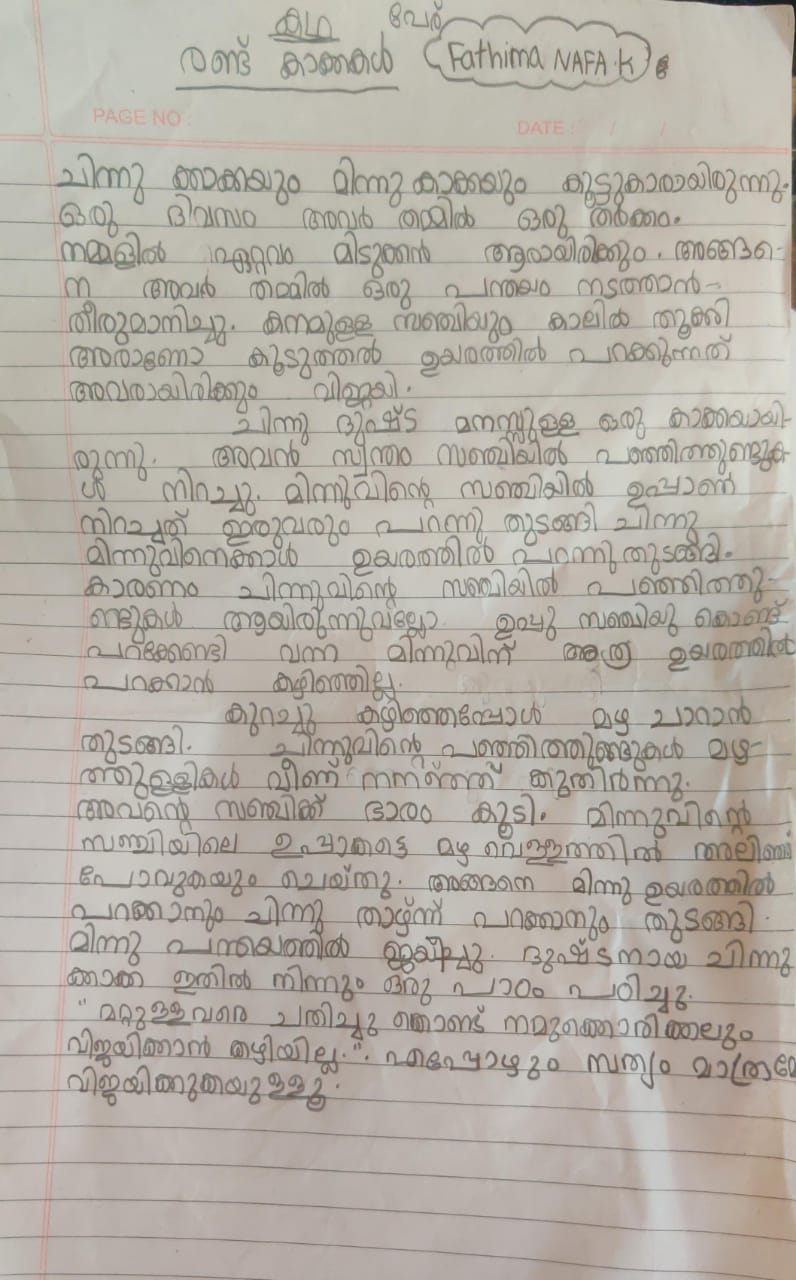 കഥ പേര്
രണ്ട് കാക്കകൾ Fathima NAFA.K
PAGE NO :
DATE : / /
ചിന്നു കാക്കയും മിന്നു കാക്കയും കൂട്ടുകാരായിരുന്നു.
ഒരു ദിവസം അവർ തമ്മിൽ ഒരു തർക്കം.
നമ്മളിൽ ഏറ്റവും മിടുക്കൻ ആരായിരിക്കും. അങ്ങെ-
ന അവർ തമ്മിൽ ഒരു പന്തയം നടത്താൻ-
തീരുമാനിച്ചു. കനമുള്ള സഞ്ചിയും കാലിൽ തൂക്കി
അരാണോ കൂടുത്തൽ ഉയരത്തിൽ പറക്കുന്നത്
അവരായിരിക്കും വിജയി.
ചിന്നു ദുഷ്ട മനസ്സുള്ള ഒരു കാക്കയായി-
രുന്നു. അവൻ സ്വന്തം സഞ്ചിയിൽ പഞ്ഞിത്തുണ്ടുക-
ൾ നിറച്ചു. മിന്നുവിന്റെ സഞ്ചിയിൽ ഉപ്പാണ്
നിറച്ചത് ഇരുവരും പറന്നു തുടങ്ങി ചിന്നു
മിന്നുവിനെക്കാൾ ഉയരത്തിൽ പറന്നു തുടങ്ങി.
കാരണം ചിന്നുവിന്റെ സഞ്ചിയിൽ പഞ്ഞിത്തു-
ണ്ടുകൾ ആയിരുന്നുവല്ലോ ഉപ്പു സഞ്ചിയു കൊണ്ട്
പറക്കേണ്ടി വന്ന മിന്നുവിന് അത്ര ഉയരത്തിൽ
പറക്കാൻ കഴിഞ്ഞില്ല.
കുറച്ചു കഴിഞ്ഞപ്പോൾ മഴ ചാറാൻ
തുടങ്ങി. ചിന്നുവിന്റെ പഞ്ഞിത്തുണ്ടുകൾ മഴ-
ത്തുള്ളികൾ വീണ് നനഞ്ഞ് കുതിർന്നു.
അവന്റെ സഞ്ചിക്ക് ഭാരം കൂടി. മിന്നുവിന്റെ
സഞ്ചിയിലെ ഉപ്പാകട്ടെ മഴ വെള്ളത്തിൽ അലിഞ്ഞ്
പോവുകയും ചെയ്തു. അങ്ങനെ മിന്നു ഉയരത്തിൽ
പറക്കാനും ചിന്നു താഴ്ന്ന് പറക്കാനും തുടങ്ങി.
മിന്നു പന്തയത്തിൽ ജയിച്ചു. ദുഷ്ടനായ ചിന്നു
കാക്ക ഇതിൽ നിന്നും ഒരു പാഠം പഠിച്ചു.
"മറ്റുള്ളവരെ ചതിച്ചു കൊണ്ട് നമുക്കൊരിക്കലും
വിജയിക്കാൻ കഴിയില്ല.". എപ്പോഴും സത്യം മാത്രമേ
വിജയിക്കുകയുള്ളൂ.